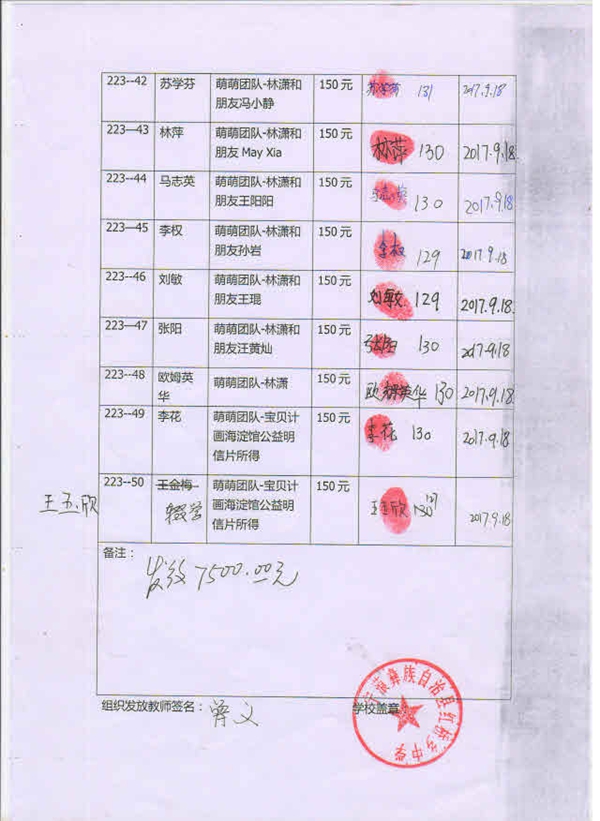 223--42 苏学芬 萌萌团队-林潇和 150元 苏学芬 131 2017.9.18
朋友冯小静
223—43 林萍 萌萌团队-林潇和 150元 林萍 130 2017.9.18
朋友 May Xia
223--44 马志英 萌萌团队-林潇和 150元 马志英 130 2017.9.18
朋友王阳阳
223—45 李权 萌萌团队-林潇和 150元 李权 129 2017.9.18
朋友孙岩
223—46 刘敏 萌萌团队-林潇和 150元 刘敏 129 2017.9.18
朋友王琨
223—47 张阳 萌萌团队-林潇和 150元 张阳 130 2017.9.18
朋友汪黄灿
223--48 欧姆英 萌萌团队-林潇 150元 欧姆英华 130 2017.9.18
华
223--49 李花 萌萌团队-宝贝计 150元 李花 130 2017.9.18
画海淀馆公益明
信片所得
223--50 王金梅 萌萌团队-宝贝计 150元 130 2017.9.18
王玉欣 辍学 画海淀馆公益明
信片所得
备注：
发放 7500.00元
组织发放教师签名： 学校盖章
彝族自治县红桥乡中学